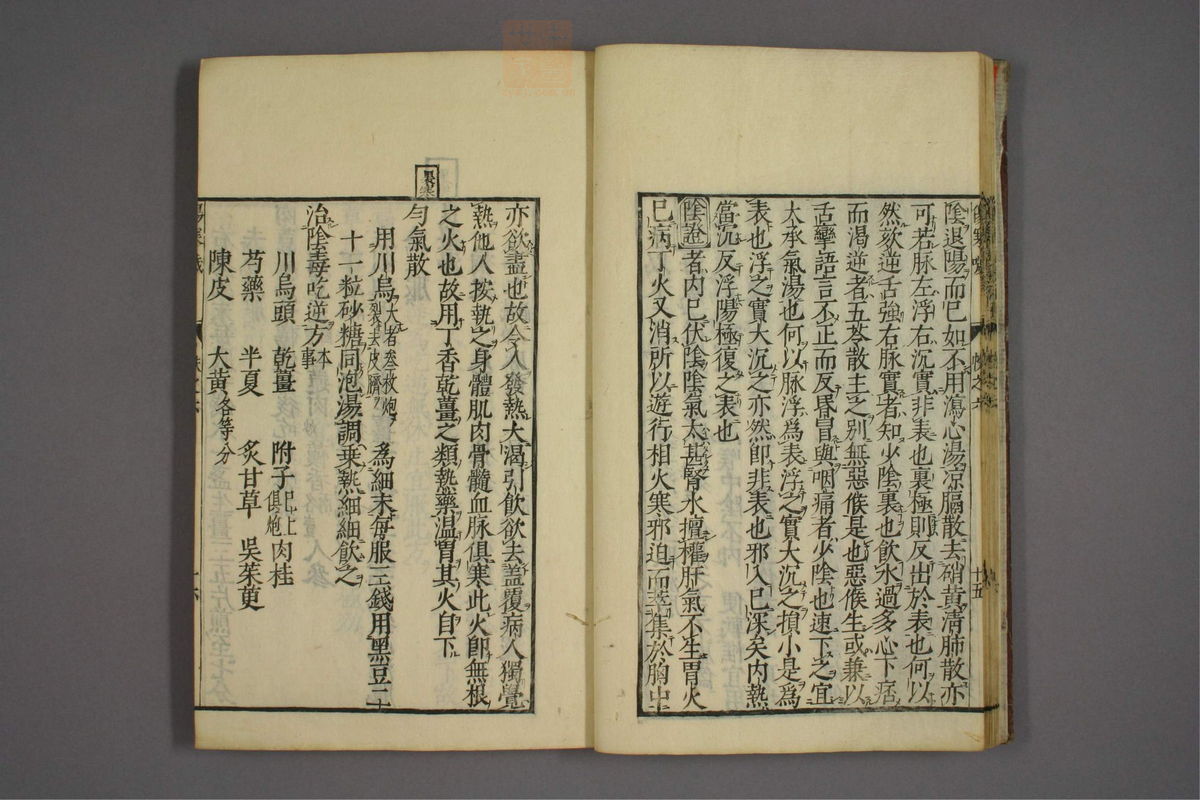 陰退陽而已如不用瀉心湯凉膈散去硝黄清肺散亦
可若脉左浮右沉實非表也裏極則反出於表也何以
然欬逆舌強右脉實者知少陰裏也飲水過多心下痞
而渴逆者五苓散主之别無惡候是也惡候生或兼以
舌攣語言不正而反昏冒與咽痛者少陰也速下之宜
大承氣湯也何以脉浮爲表浮之實大沉之損小是爲
表也浮之實大沉之亦然即非表也邪入已深矣内熱
當沉反浮陽極復之表也
陰證者内已伏陰陰氣太甚腎水擅權肝氣不生胃火
已病丁火又消所以遊行相火寒邪迫而萃集於胸中
亦欲盡也故令人發熱大渴引飲欲去盖覆病人獨覺
熱他人按執之身體肌肉骨髓血脉俱寒此火即無根
之火也故用丁香乾薑之類熱藥温胃其火自下
匀氣散
用川烏大者叁枚炮裂去皮臍 爲細末每服二錢用黑豆二十
十一粒砂糖同泡湯調乗熱細細飲之
治陰毒吃逆方本事
川烏頭 乾薑 附子已上俱炮 肉桂
芍藥 半夏 炙甘草 吳茱萸
陳皮 大黄各等分